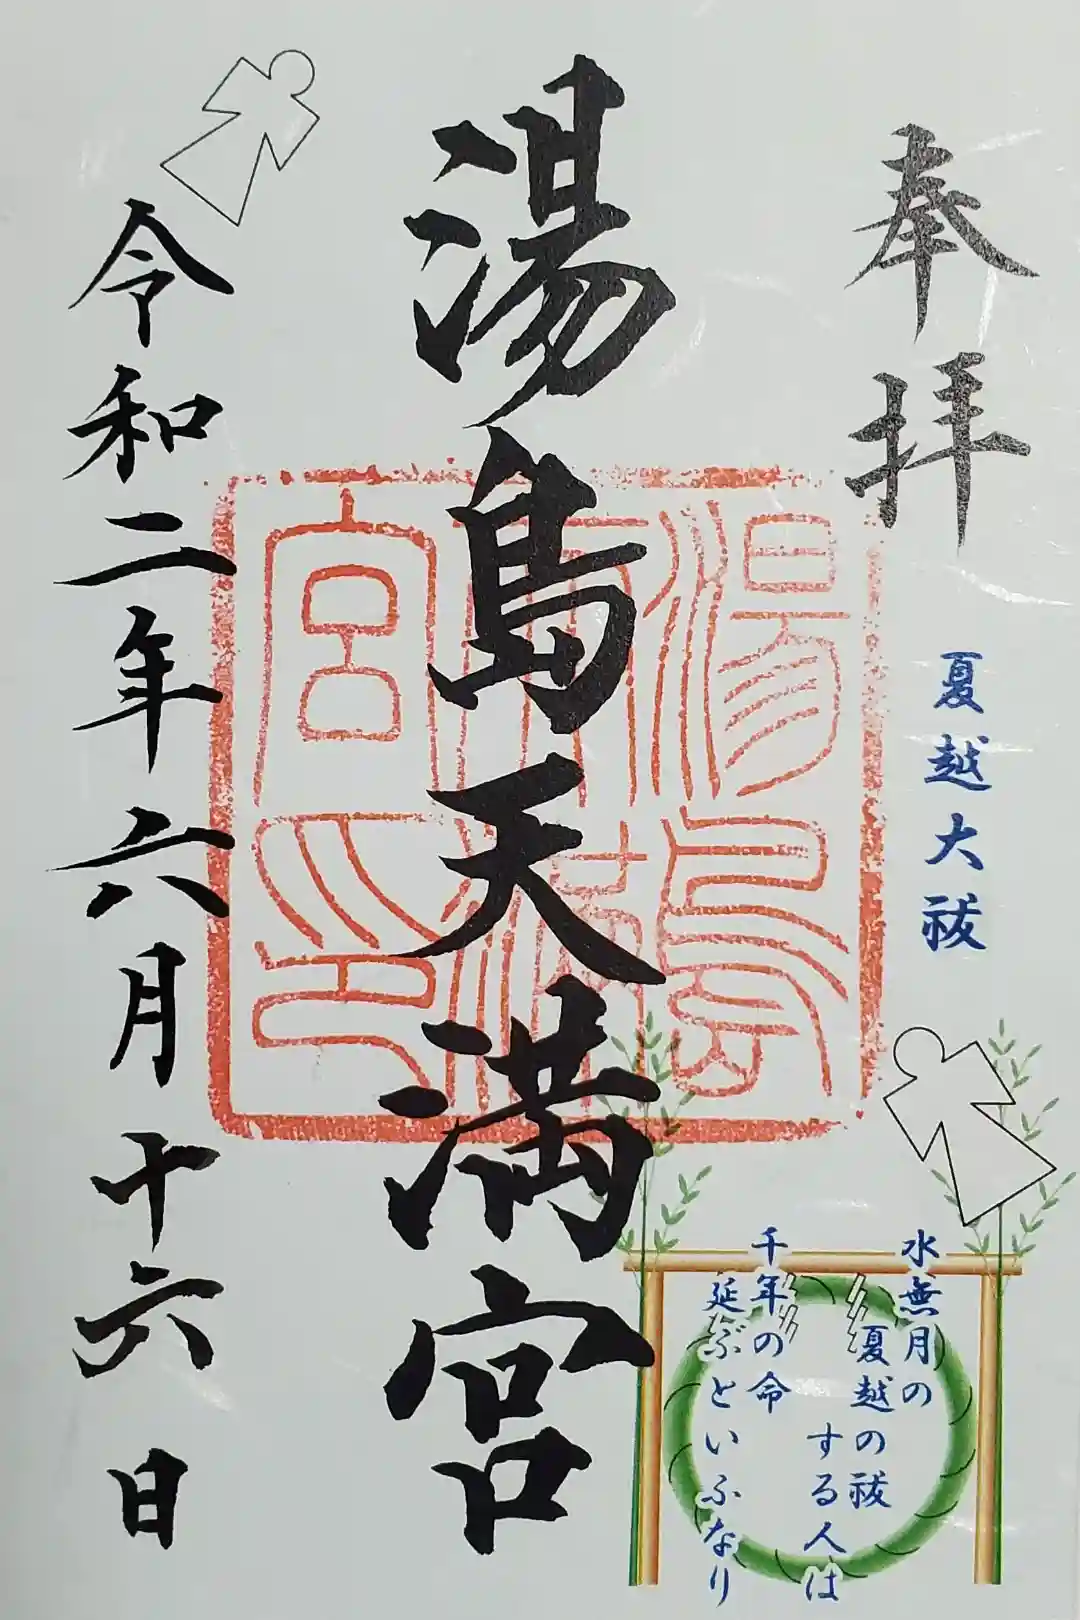 奉拝
夏越大祓
湯島天満宮
令和二年六月十六日
水無月の
夏越の祓
する人は
千年の命
延ぶといふなり
湯島
天満
宮印